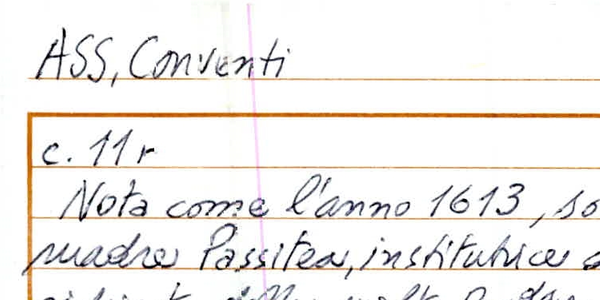 ASS, Conventi
c. 11r
Nota come l'anno 1613, so
madre Passitea, institutrice